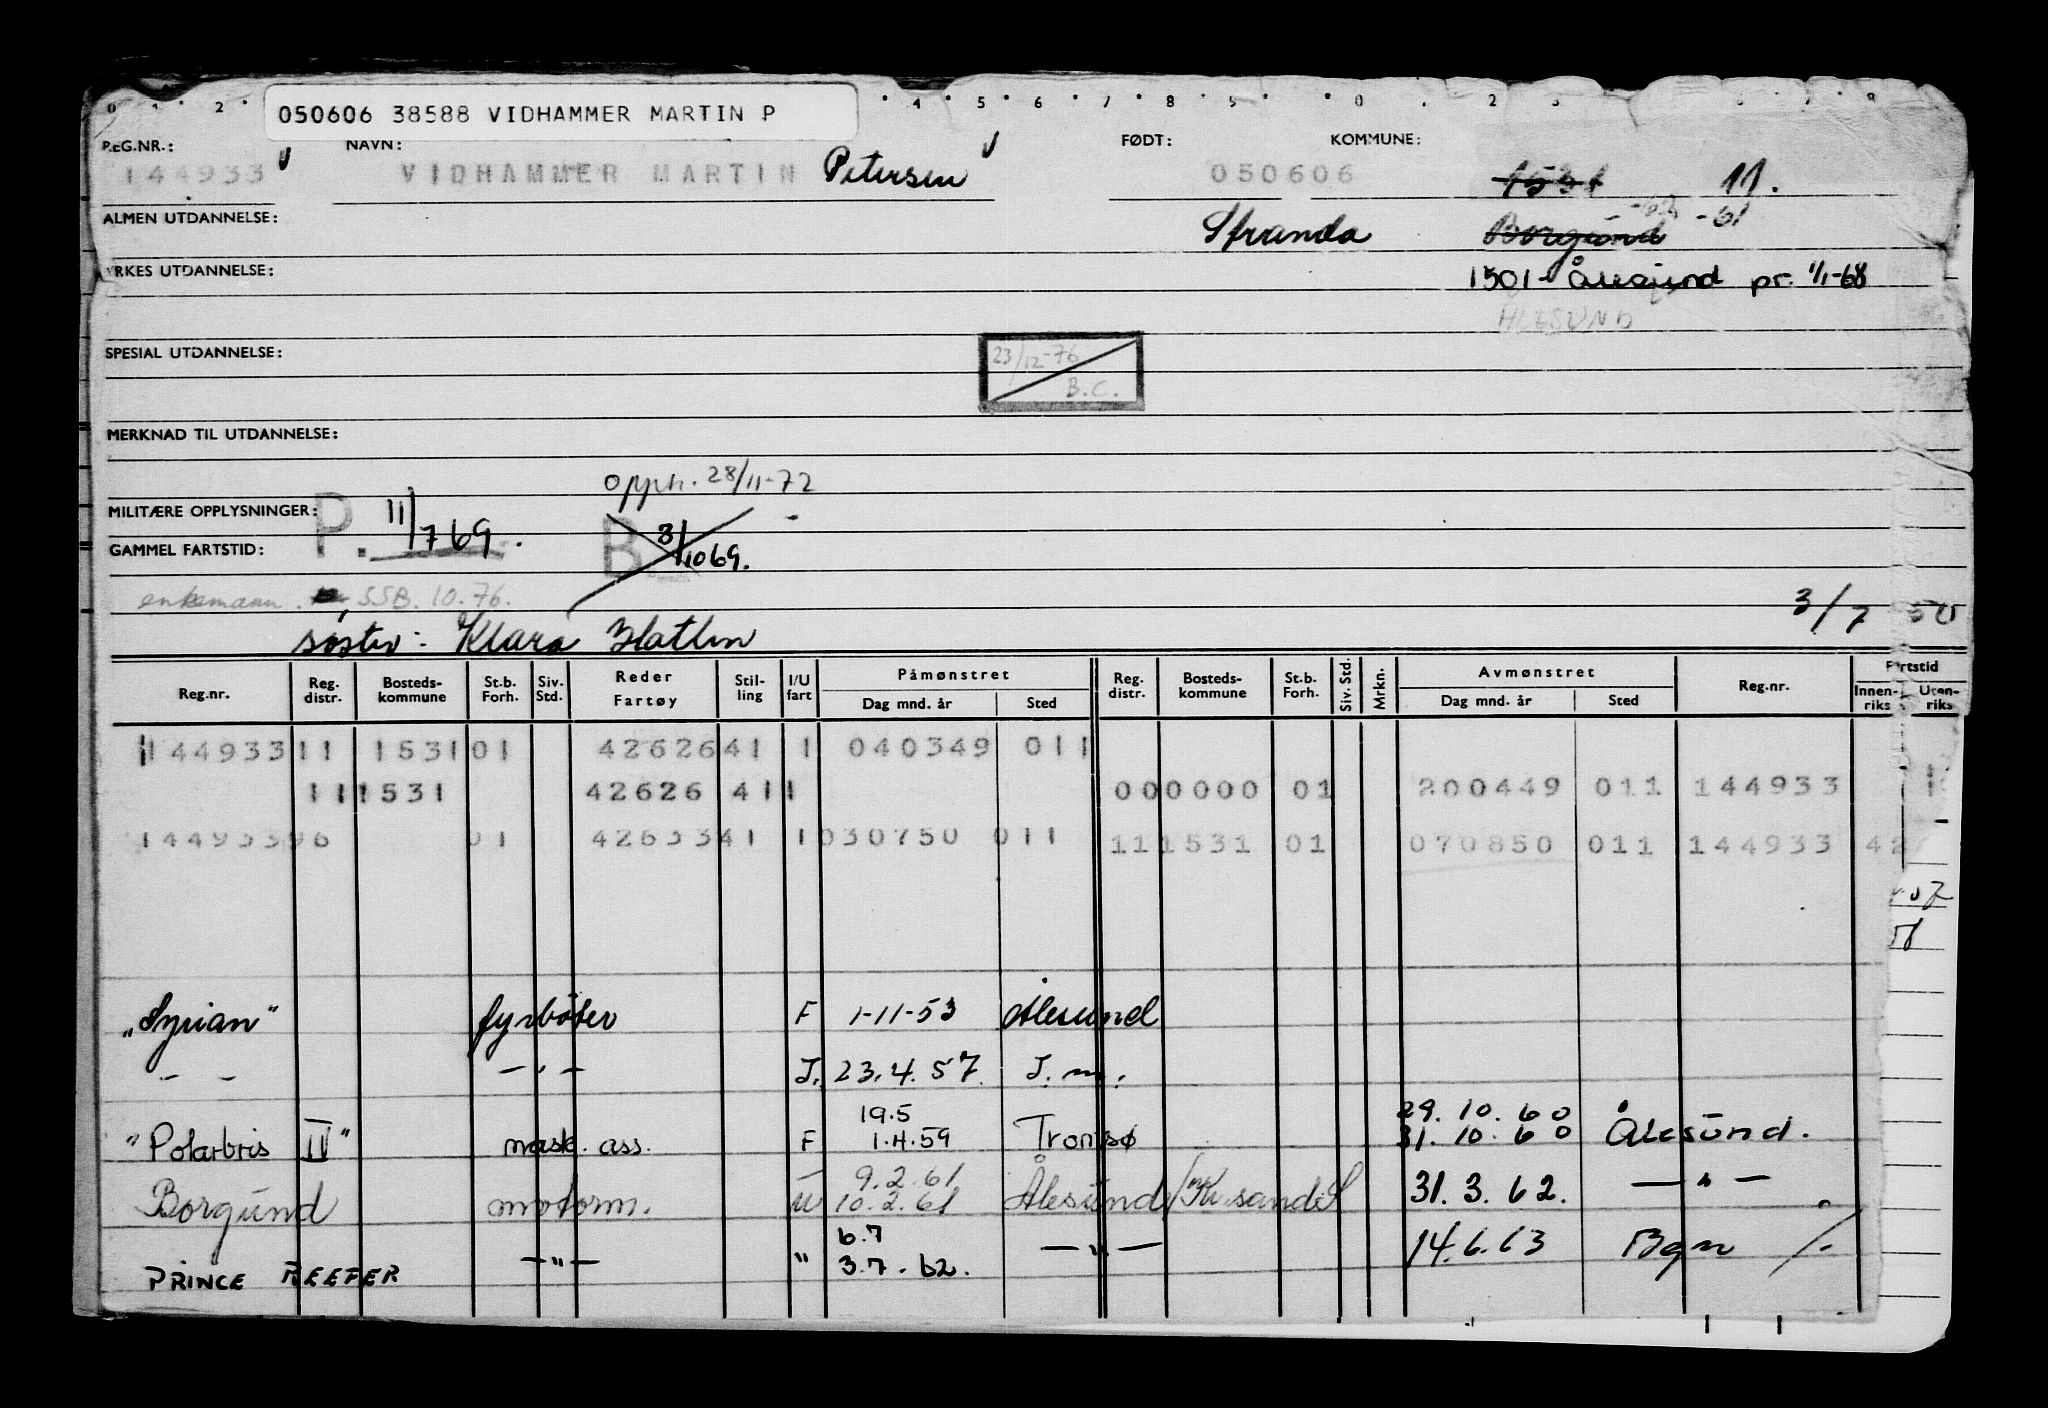 050606 38588 VIDHAMMER MARTIN P
REG.NR.: NAVN: FØDT: KOMMUNE:
144933 VIDHAMMER MARTIN Petersen 050606 1531 11.
ALMEN UTDANNELSE: Stranda Borgund -61
YRKES UTDANNELSE: 1501 - Ålesund pr. 1/1-68
ÅLESUND
SPESIAL UTDANNELSE: 23/12-76 B.C.
MERKNAD TIL UTDANNELSE:
Opph. 28/11-72
MILITÆRE OPPLYSNINGER: P. 11/769. B. 3/1069.
GAMMEL FARTSTID:
enkemann. SSB. 10.76. 3/7
søster: Klara Hatlen
Reg.nr. Reg. distr. Bosteds-kommune St.b. Forh. Siv. Std. Reder Fartøy Stil-ling I/U fart Påmønstret Dag mnd. år Sted Reg. distr. Bosteds-kommune St.b. Forh. Siv. Std. Mrkn. Avmønstret Dag mnd. år Sted Reg.nr. Fartstid Innen-riks Uten-riks
144933 11 1531 01 42626 41 1 040349 011
11 1531 42626 41 1 000000 01 200449 011 144933 1
144933 96 01 42633 41 1 030750 011 11 1531 01 070850 011 144933 42
"Syrian" fyrbøter F 1-11-53 Ålesund
— — —"— I. 23.4.57 I. m.
19.5 29.10.60
"Polarbris IV" mask. ass. F 1.4.59 Tromsø 31.10.60 Ålesund.
9.2.61
Borgund motorm. U 10.2.61 Ålesund/Kr.sand S 31.3.62. —"—
6.7
PRINCE REEFER —"— " 3.7.62. —"— 14.6.63 Bgn /-